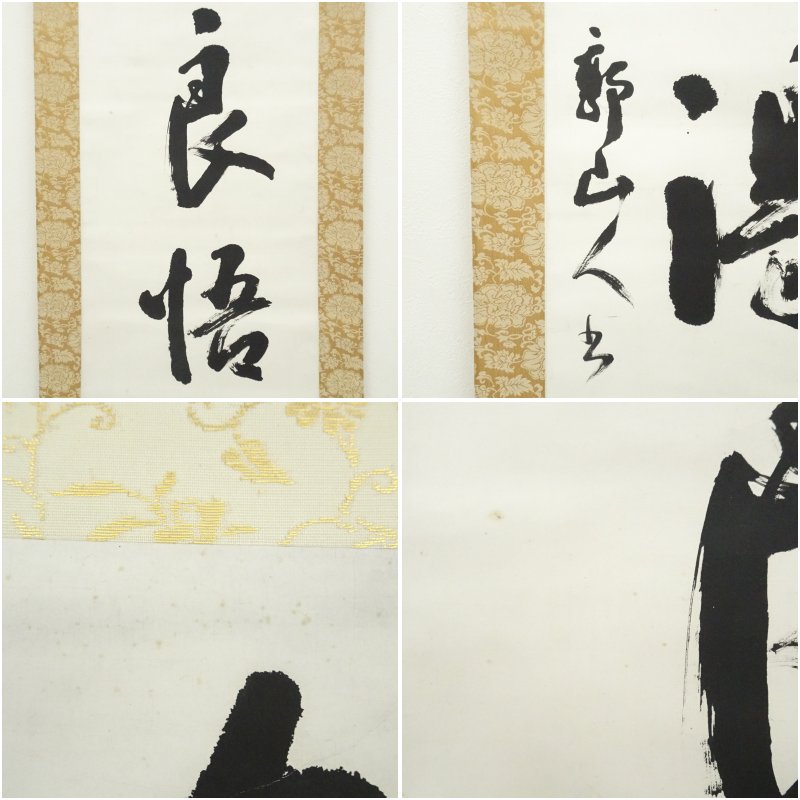 良悟
郭山人书